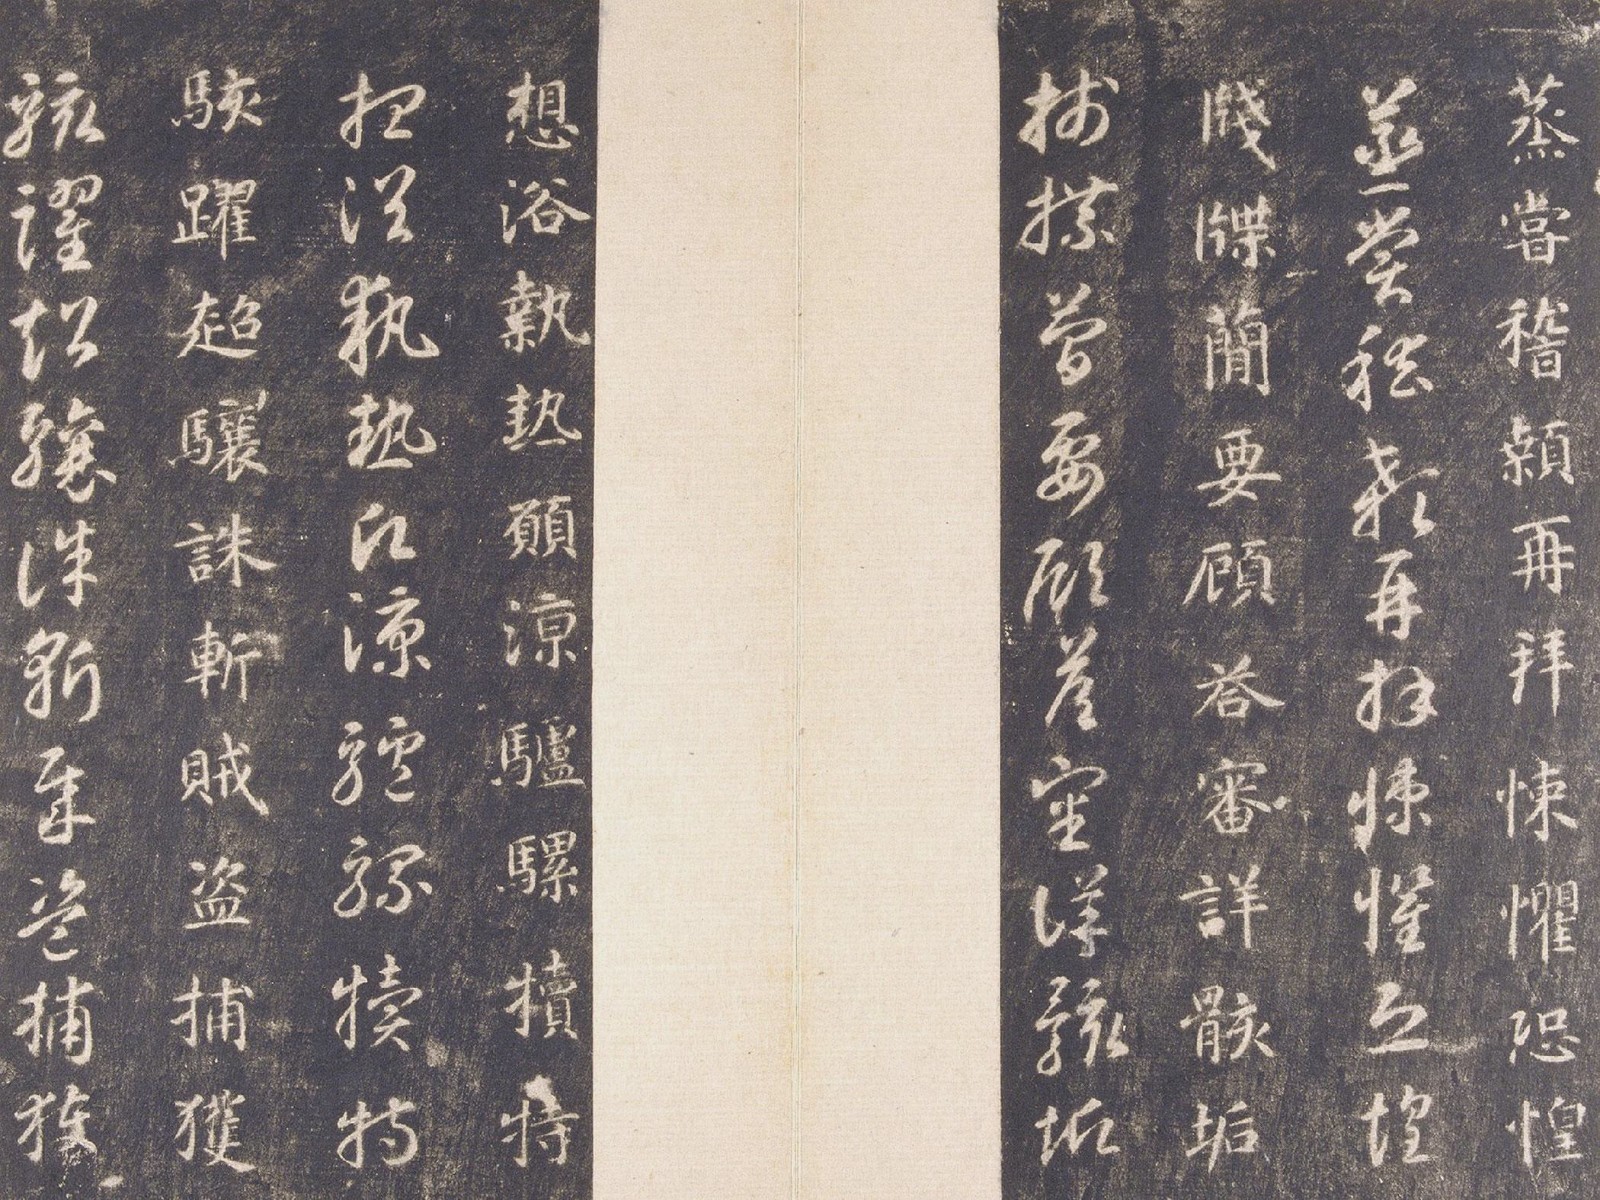 蒸嘗稽顙再拜悚懼恐惶
蒸嘗稽顙再拜悚懼恐惶
牋牒簡要顧荅審詳骸垢
牋牒簡要顧荅審詳骸垢
想浴執熱願涼驢騾犢特
想浴執熱願涼驢騾犢特
駭躍超驤誅斬賊盜捕獲
駭躍超驤誅斬賊盜捕獲